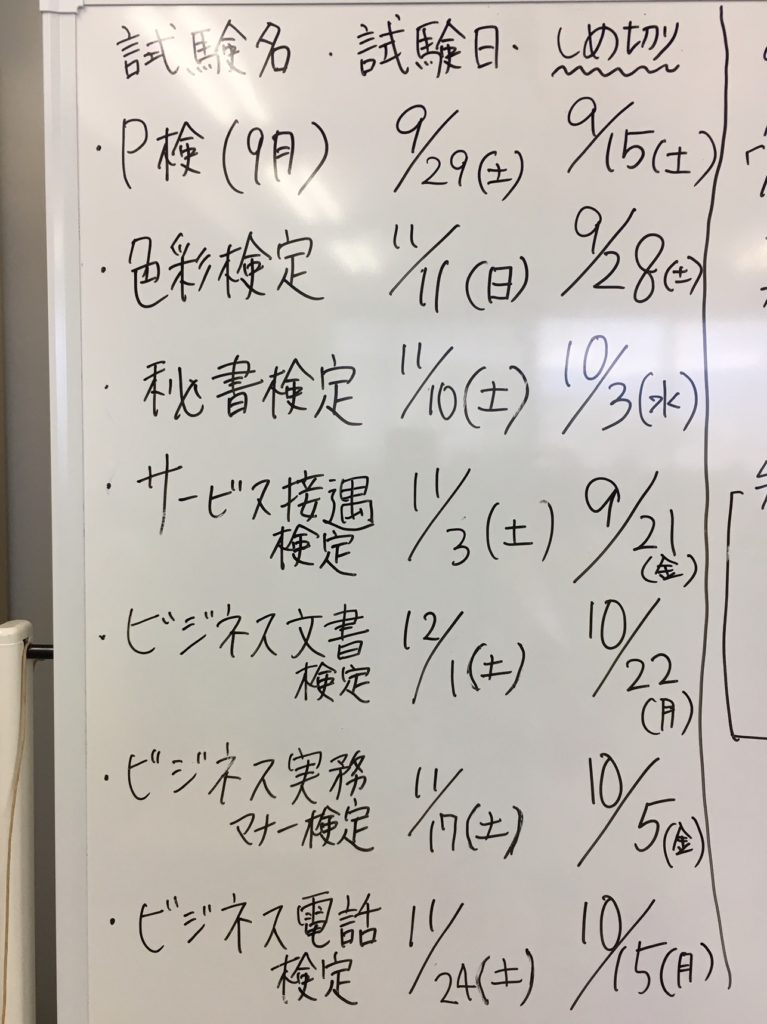 試験名・試験日・しめ切り
・P検(9月) 9/29(土) 9/15(土)
・色彩検定 11/11(日) 9/28(土)
・秘書検定 11/10(土) 10/3(水)
・サービス接遇 11/3(土) 9/21
検定 (金)
・ビジネス文書 12/1(土) 10/22
検定 (月)
・ビジネス実務 11/17(土) 10/5(金)
マナー検定
・ビジネス電話 11/24(土) 10/15(月)
検定